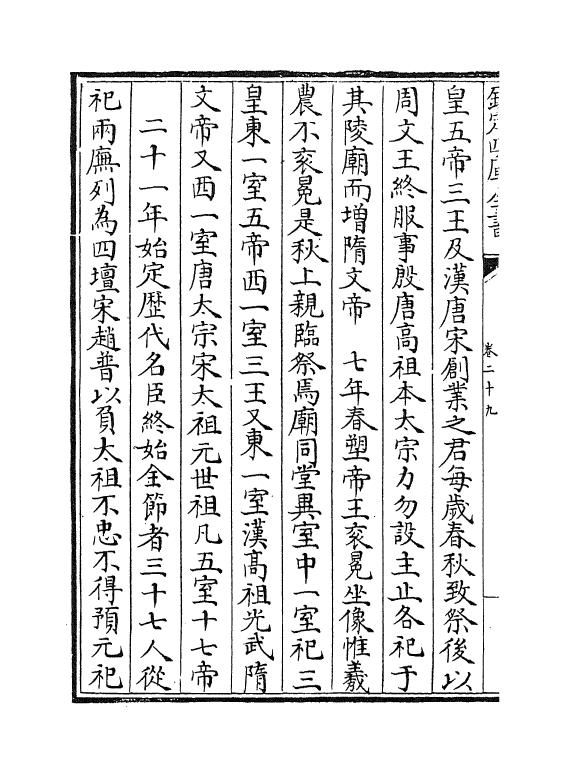 欽定四庫全書
卷二十九
皇五帝三王及漢唐宋創業之君每歲春秋致祭後以
周文王終服事殷唐高祖本太宗力勿設主止各祀于
其陵廟而增隋文帝　七年春塑帝王衮冕坐像惟羲
農不衮冕是秋上親臨祭焉廟同堂異室中一室祀三
皇東一室五帝西一室三王又東一室漢髙祖光武隋
文帝又西一室唐太宗宋太祖元世祖凡五室十七帝
　二十一年始定歴代名臣終始全節者三十七人從
祀兩廡列為四壇宋趙普以負太祖不忠不得預元祀